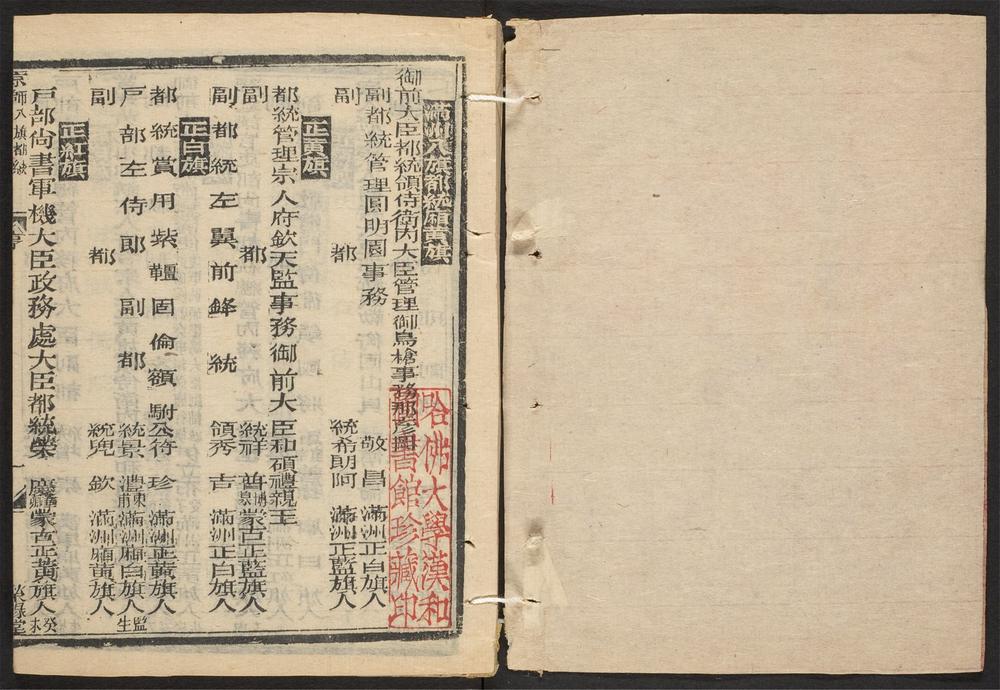 滿洲八旗都統廂黃旗
御前大臣都統領侍衛內大臣管理御鳥槍事務那彥圖
副都統管理圓明園事務 敬昌 滿洲正白旗人
副 都 統希朗阿 滿洲正藍旗人
正黃旗
都統管理宗人府欽天監事務御前大臣和碩禮親王
副 都 統祥普 蒙古正藍旗人
副都統左翼前鋒統領秀吉 滿洲正白旗人
正白旗
都統賞用紫韁固倫額駙公符珍 滿洲正黃旗人
戶部左侍郎副都統景灃 滿洲廂白旗人
副 都 統兜欽 滿洲廂黃旗人
正紅旗
戶部尚書軍機大臣政務處大臣都統榮慶 蒙古正黃旗人
京師八旗都統
榮錄堂
哈佛大學漢和
圖書館珍藏印